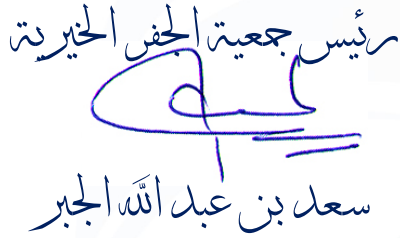 رئيس جمعية الجفر الخيرية
سعد بن عبد الله الجبر